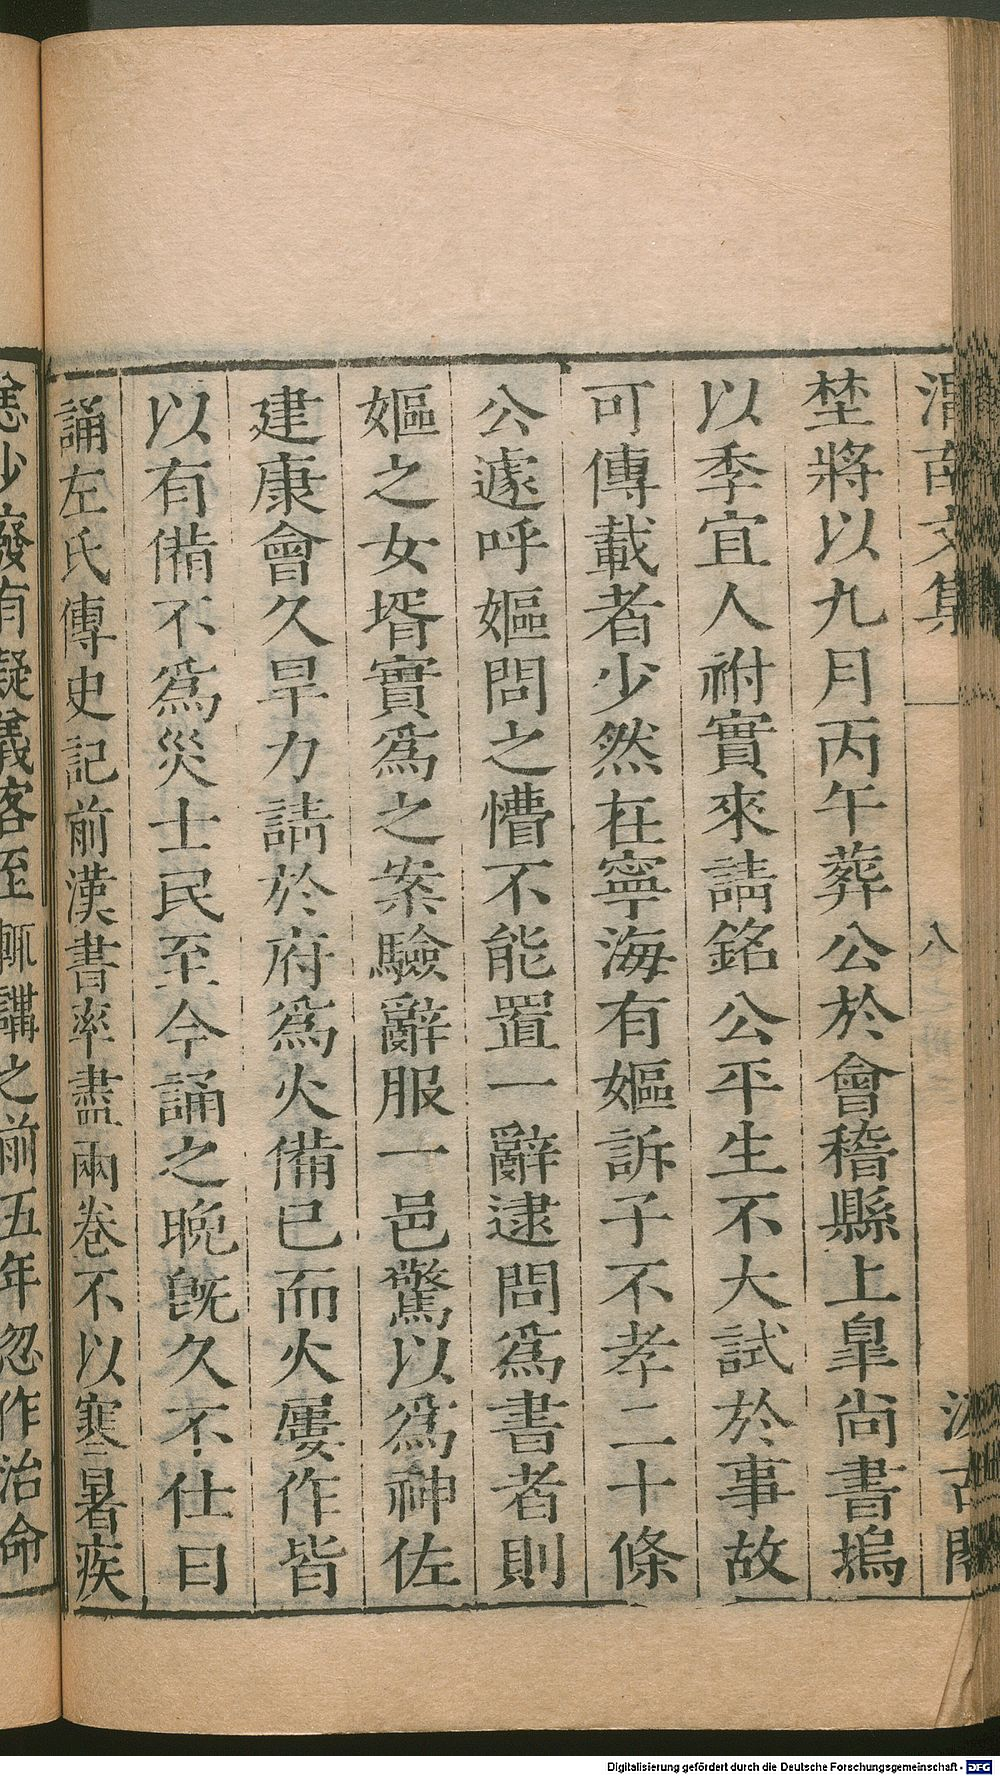 渭南文集 八 汲古閣
埜將以九月丙午葬公於會稽縣上皐尚書塢
以季宜人祔實來請銘公平生不大試於事故
可傳載者少然在寧海有嫗訴子不孝二十條
公遽呼嫗問之懵不能置一辭逮問爲書者則
嫗之女壻實爲之案驗辭服一邑驚以爲神佐
建康會久旱力請於府爲火備已而火屢作皆
以有備不爲災士民至今誦之晚旣久不仕日
誦左氏傳史記前漢書率盡兩卷不以寒暑疾
怠少廢有疑義客至輒講之前五年忽作治命
Digitalisierung gefördert durch die Deutsche Forschungsgemeinschaft - DFG